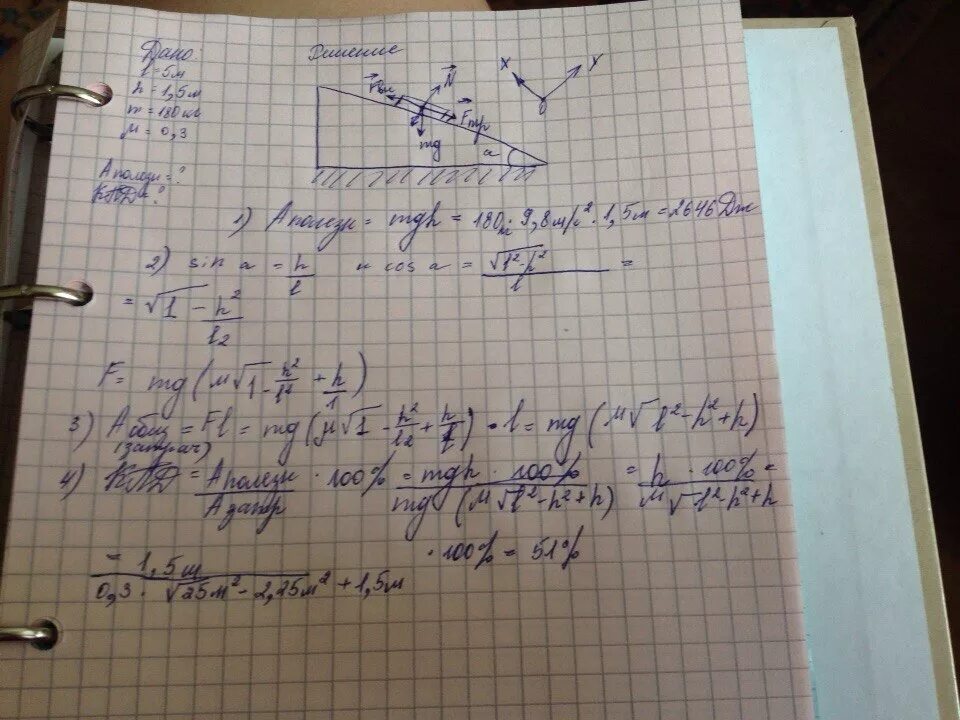 Дано:
l = 5м
h = 1,5м
m = 180 кг
μ = 0,3
A полезн = ?
КПД - ?
Решение
N
Fтр
mg
a
X
Y
0
1) A полезн = mgh = 180 · 9,8 м/с² · 1,5м = 2646 Дж
2) sin a = h/l и cos a = √l²-h²/l =
= √1 - h²/l²
F = mg (μ√1 - h²/l² + h/l)
3) A общ = Fl = mg (μ√1 - h²/l² + h/l) · l = mg (μ√l²-h²+h)
(затрач)
4) КПД = A полезн/A затр · 100% = mgh · 100%/mg (μ√l²-h²+h) = h · 100%/μ√l²-h²+h =
= 1,5м/0,3 · √25м² - 2,25м² + 1,5м · 100% = 51%